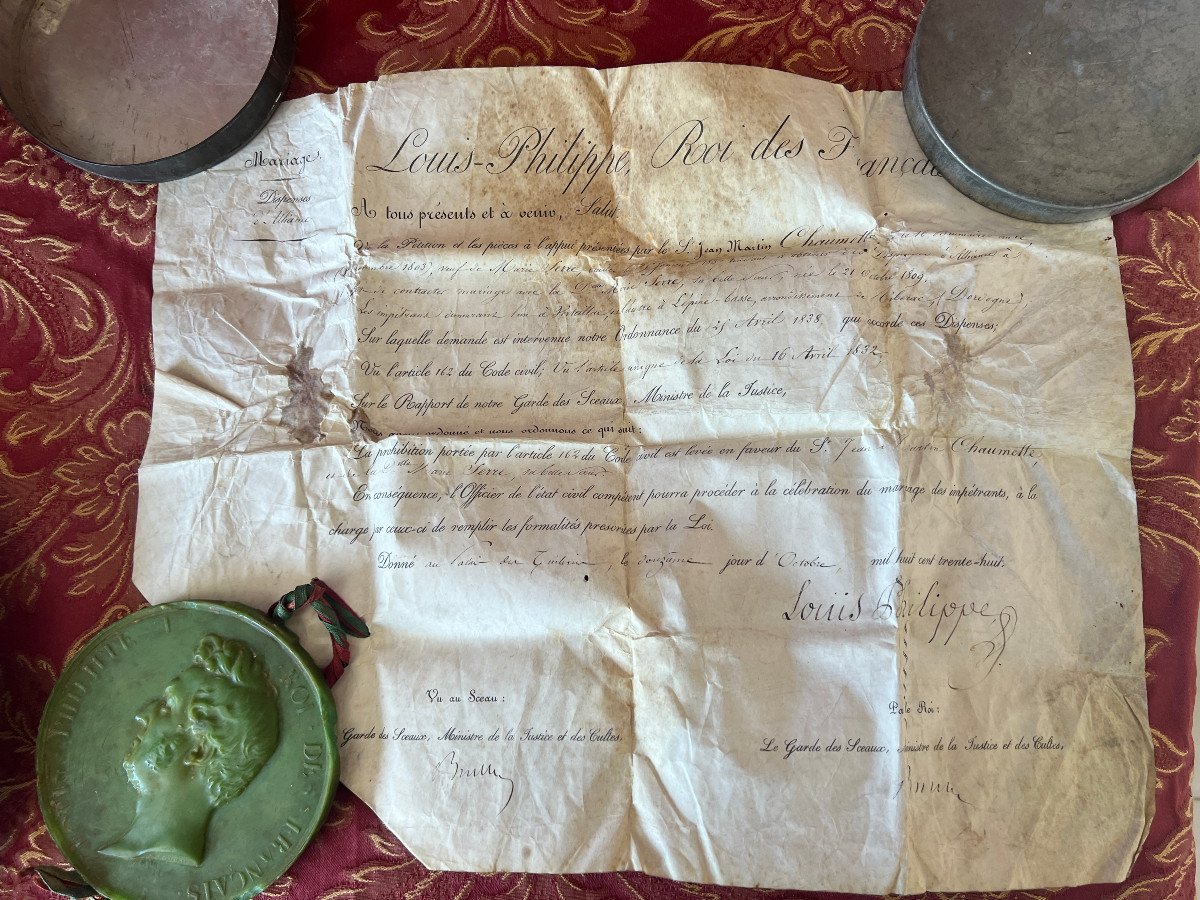 Mariage.
Dispenses
d'Alliance
Louis-Philippe, Roi des Françai
A tous présents et à venir, Salut
Vu la Pétition et les pièces à l'appui présentées par le S. Jean Martin Chaumette
1803, veuf de Marie Serre, Serre, sa belle sœur, née le 21 1809,
de contracter mariage avec la
Les impétrants demeurant l'un à l'autre à arrondissement de Riberac, (Dordogne)
Sur laquelle demande est intervenue notre Ordonnance du 25 Avril 1838 qui accorde ces Dispenses;
Vu l'article 164 du Code civil; Vu l'article unique de la Loi du 16 Avril 1832
Sur le Rapport de notre Garde des Sceaux, Ministre de la Justice,
Nous avons ordonné et nous ordonnons ce qui suit:
La prohibition portée par l'article 164 du Code civil est levée en faveur du S. Jean Martin Chaumette,
et de la Dlle Serre, sa belle sœur
En conséquence, l'Officier de l'état civil compétent pourra procéder à la célébration du mariage des impétrants, à la
charge par ceux-ci de remplir les formalités prescrites par la Loi.
Donné au Palais des Tuileries, le douzième jour d'Octobre, mil huit cent trente-huit.
Louis Philippe
Vu au Sceau:
Par le Roi:
Garde des Sceaux, Ministre de la Justice et des Cultes,
Le Garde des Sceaux, Ministre de la Justice et des Cultes,
ROI DES FRANÇAIS